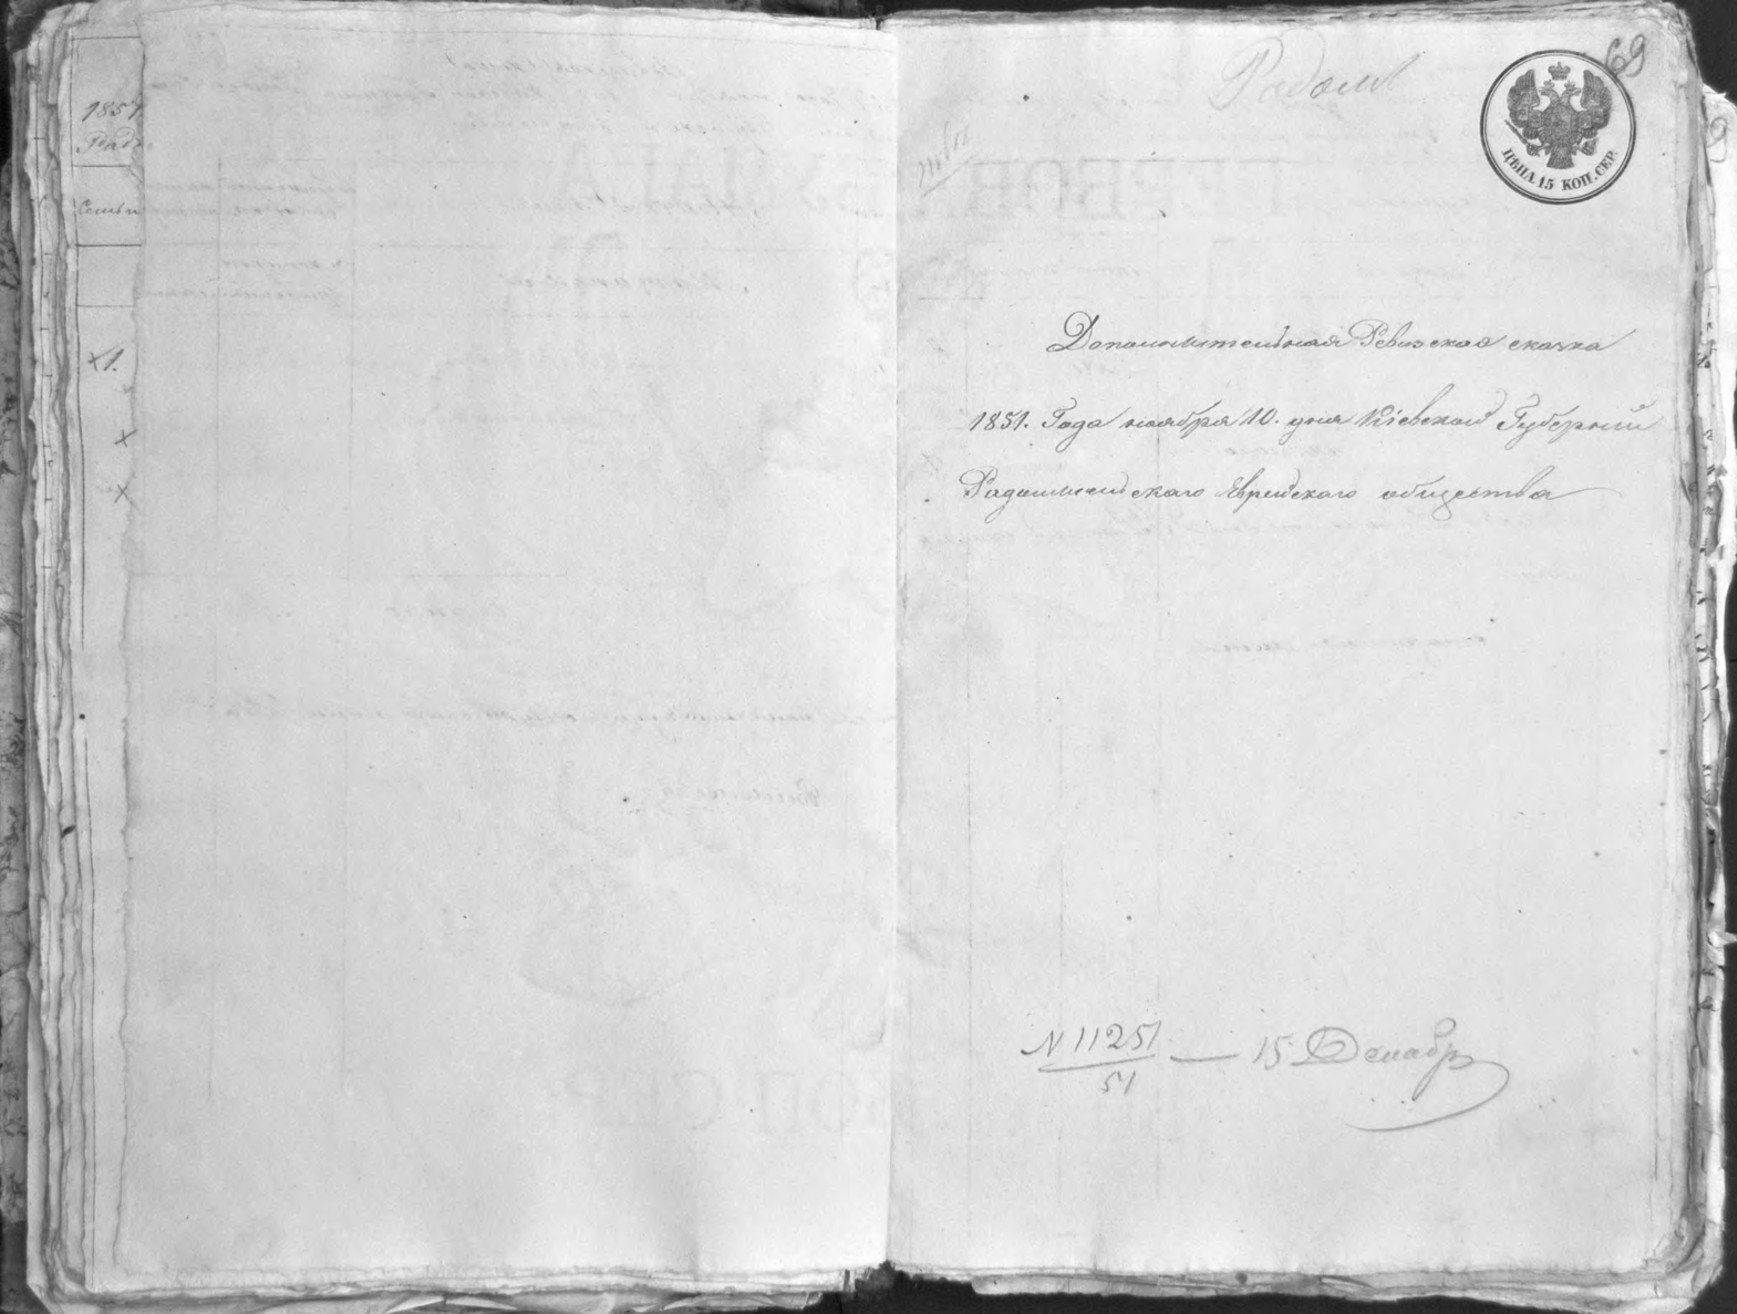 1851
Рад
Семьи
1.
Радом
69
ЦѢНА 15 КОП. СЕР.
Дополнительная Ревизская сказка
1851. Года ноября 10. дня Кіевской Губерніи
Радомысльского Еврейского общества
N 11251 — 15 Декабр
51